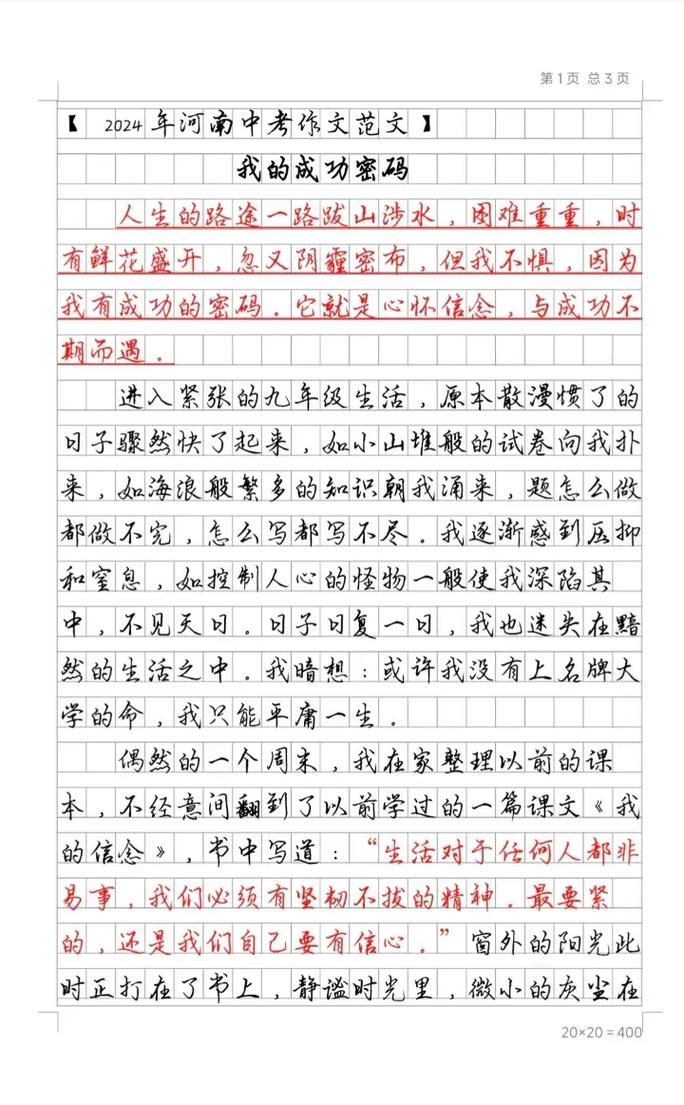 第1页 总3页
【 2024年河南中考作文范文 】
我的成功密码
人生的路途一路跋山涉水，困难重重，时
有鲜花盛开，忽又阴霾密布，但我不惧，因为
我有成功的密码。它就是心怀信念，与成功不
期而遇。
进入紧张的九年级生活，原本散漫惯了的
日子骤然快了起来，如小山堆般的试卷向我扑
来，如海浪般繁多的知识朝我涌来，题怎么做
都做不完，怎么写都写不尽。我逐渐感到压抑
和窒息，如控制人心的怪物一般使我深陷其
中，不见天日。日子日复一日，我也迷失在黯
然的生活之中。我暗想：或许我没有上名牌大
学的命，我只能平庸一生。
偶然的一个周末，我在家整理以前的课
本，不经意间翻到了以前学过的一篇课文《我
的信念》，书中写道：“生活对于任何人都非
易事，我们必须有坚韧不拔的精神。最要紧
的，还是我们自己要有信心。”窗外的阳光此
时正打在了书上，静谧时光里，微小的灰尘在
20×20=400